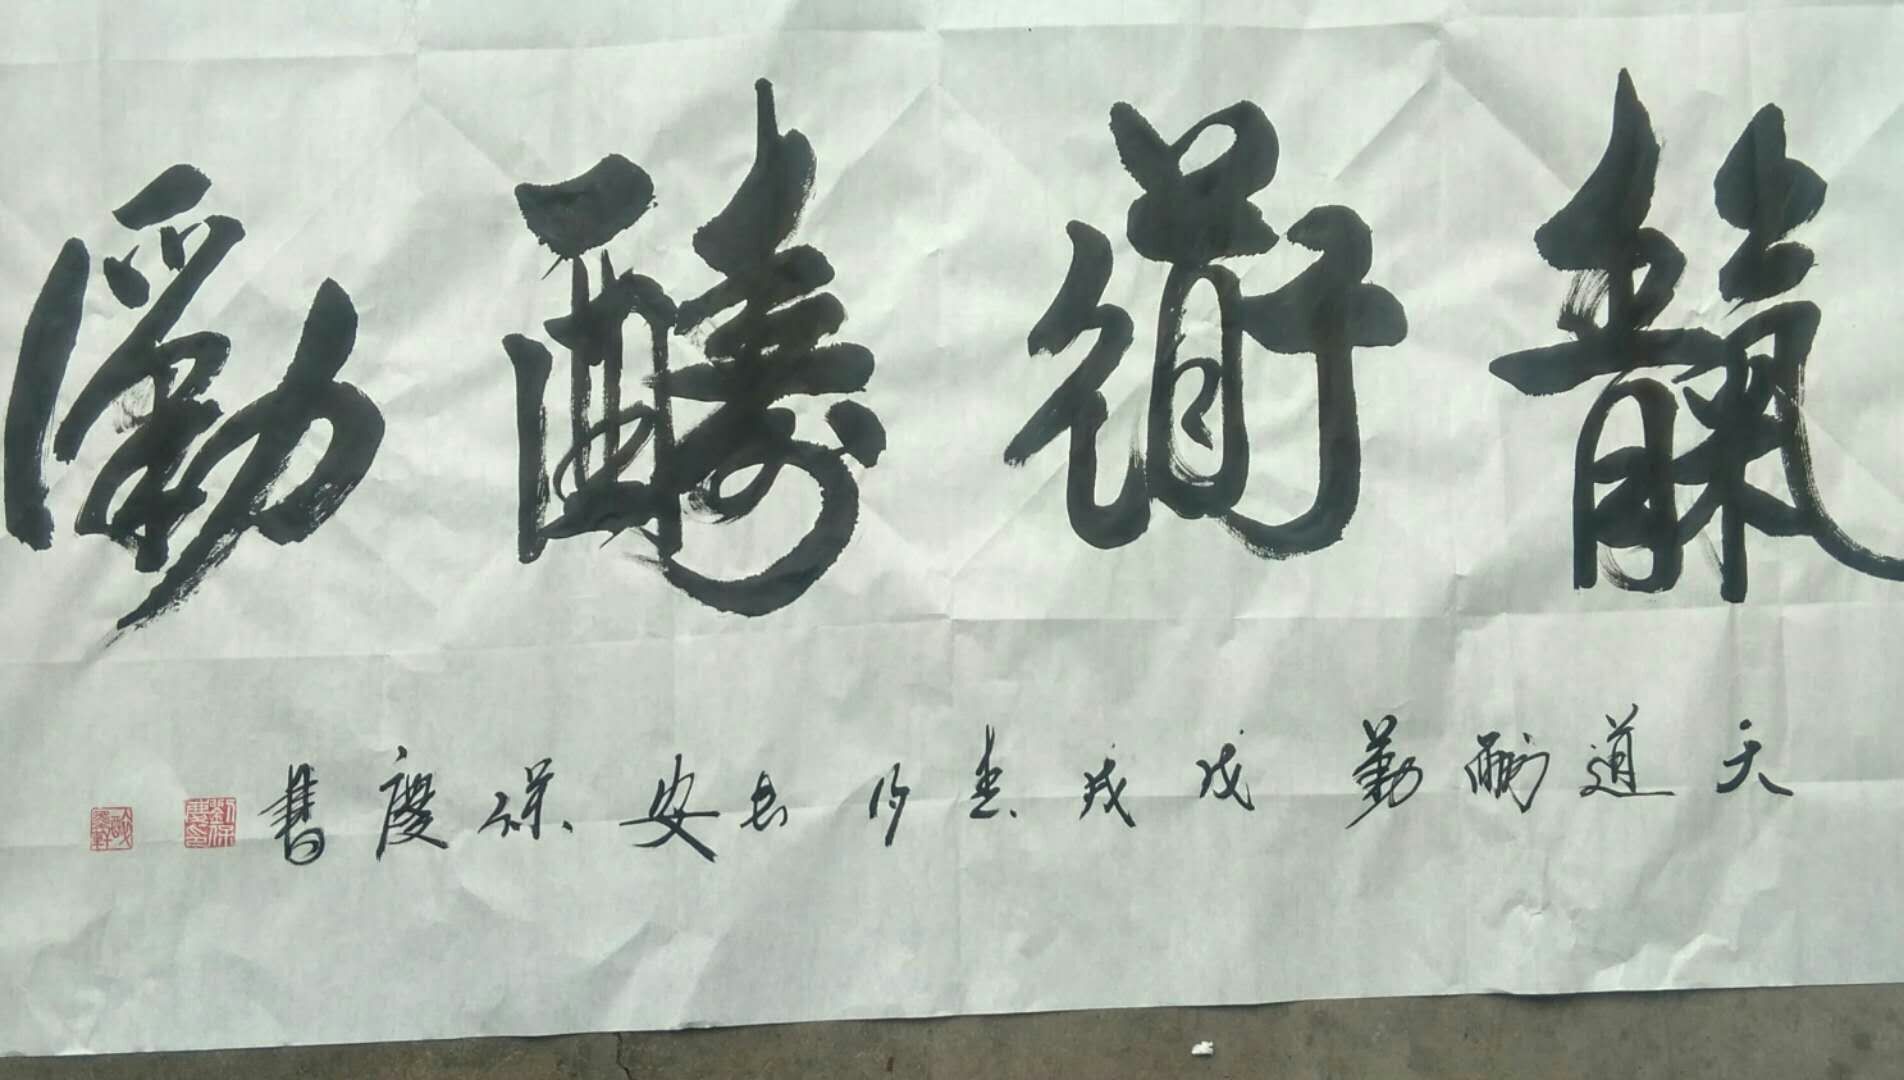 靝衟醻勤
天道酬勤戊戌春月长安保慶書
劉保慶印